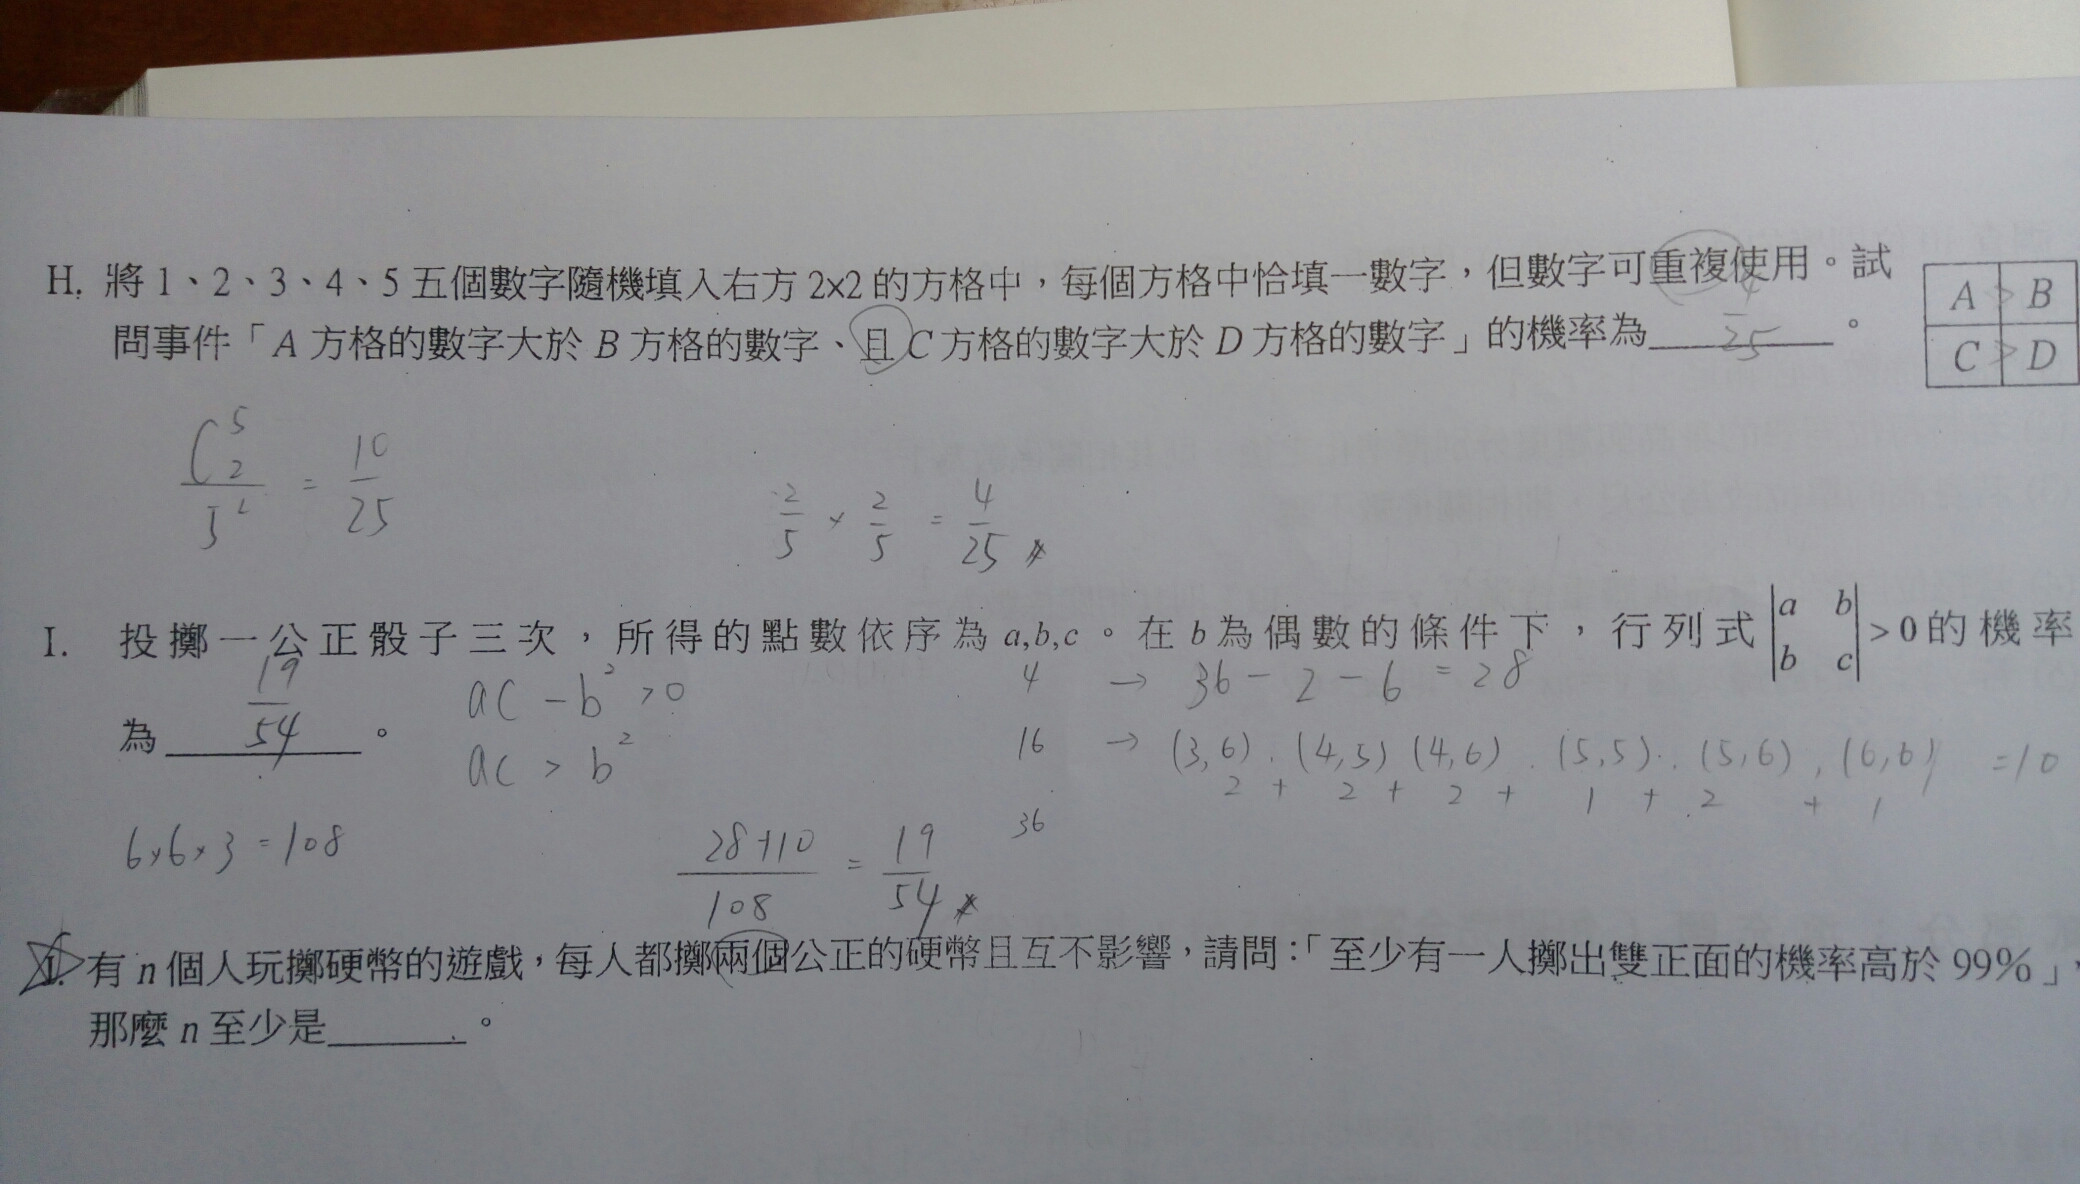 H. 將1、2、3、4、5五個數字隨機填入右方2×2的方格中，每個方格中恰填一數字，但數字可重複使用。試
問事件「A方格的數字大於B方格的數字、且C方格的數字大於D方格的數字」的機率為 4/25 。
A > B
C > D
C^5_2 / 5^2 = 10/25
2/5 × 2/5 = 4/25
I. 投擲一公正骰子三次，所得的點數依序為a,b,c。在b為偶數的條件下，行列式|a b|>0的機率
|b c|
為 19/54 。
ac - b² > 0
ac > b²
4 → 36 - 2 - 6 = 28
16 → (3,6). (4,5) (4,6). (5,5). (5,6), (6,6) = 10
2 + 2 + 2 + 1 + 2 + 1
36
6×6×3 = 108
28+10 / 108 = 19/54
有n個人玩擲硬幣的遊戲，每人都擲兩個公正的硬幣且互不影響，請問：「至少有一人擲出雙正面的機率高於99%」，
那麼n至少是 。